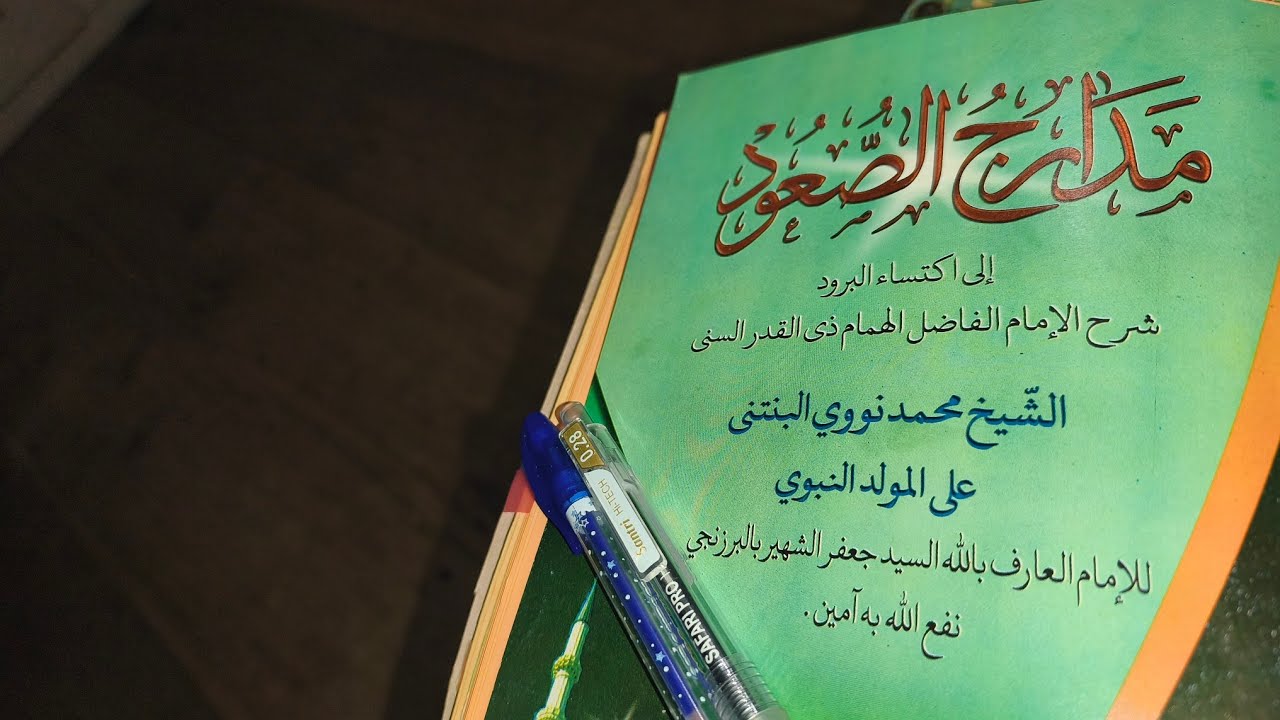 مَدَارِجُ الصُّعُودِ
إلى اكتساء البرود
شرح الإمام الفاضل الهمام ذى القدر السنى
الشّيخ محمد نووي البنتنى
على المولد النبوي
للإمام العارف بالله السيد جعفر الشهير بالبرزنجي
نفع الله به آمين.
0.28
Santri Hi-TECH
SAFARI PRO